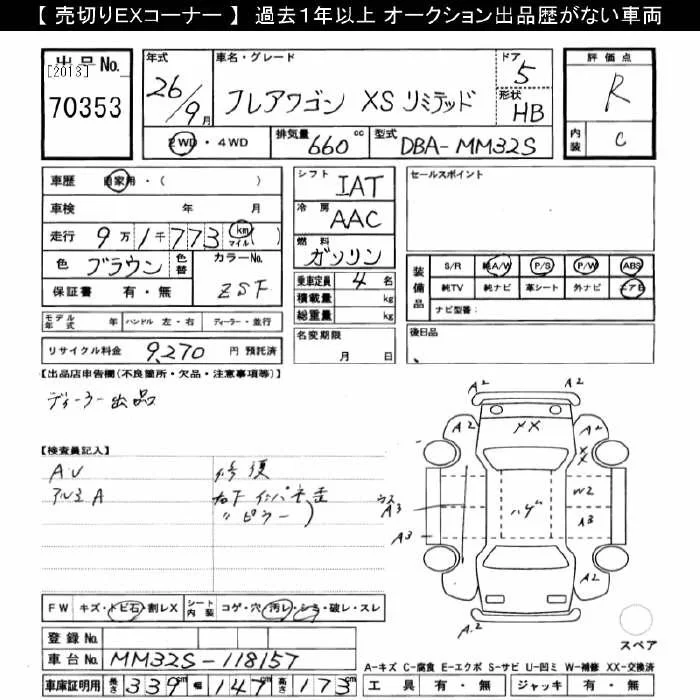 【 売切りEXコーナー 】 過去1年以上 オークション出品歴がない車両
出品No.
[2013]
70353
年式
26/9月
車名・グレード
フレアワゴン XSリミテッド
ドア
5
形状
HB
2WD・4WD
排気量 660 cc
型式 DBA-MM32S
評価点
R
内装
C
車歴 自家用・( )
車検 年 月
走行 9万1千773 km マイル ( )
色 ブラウン 色替
カラーNo.
ZSF
保証書 有・無
モデル年式 年 ハンドル 左・右 ディーラー・並行
リサイクル料金 9,270 円 預託済
シフト
IAT
冷房
AAC
燃料
ガソリン
乗車定員 4 名
積載量 kg
総重量 kg
名変期限
月 日
セールスポイント
装備品
S/R 純A/W P/S P/W ABS
純TV 純ナビ 革シート 外ナビ エアB
ナビ型番:
後日品
【出品店申告欄(不良箇所・欠品・注意事項等)】
ディーラー出品
【検査員記入】
A.U 修復
アルミA 右下インパネ歪
〃ピラー)
A2 A2
A2 A2
XX XX
ウス
A3 ハゲ W2
A3 A3
A2 A2
A2
スペア
FW キズ・トビ石・割レX シート内装 コゲ・穴・汚レ・シミ・破レ・スレ
登録No.
車台No. MM32S-118157
車庫証明用 長さ 339 cm 幅 147 cm 高さ 173 cm
A-キズ C-腐食 E-エクボ S-サビ U-凹ミ W-補修 XX-交換済
工具 有・無 ジャッキ 有・無